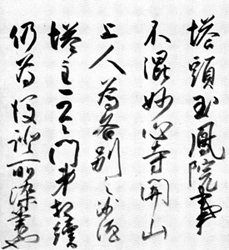 塔頭玉鳳院事
不混妙心寺開山
上人為各別之沙汰
塔主一之門弟相續
仍為後證所染筆